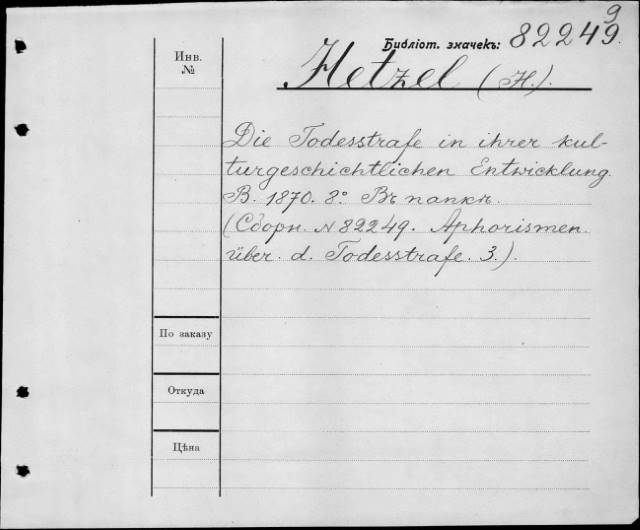 9
Библіот. значекъ: 82249.
Инв.
№
Hetzel (H.).
Die Todesstrafe in ihrer kul-
turgeschichtlichen Entwicklung.
B. 1870. 8°. Въ папкѣ.
(Сборн. N 82249. Aphorismen.
über. d. Todesstrafe. 3.).
По заказу
Откуда
Цѣна